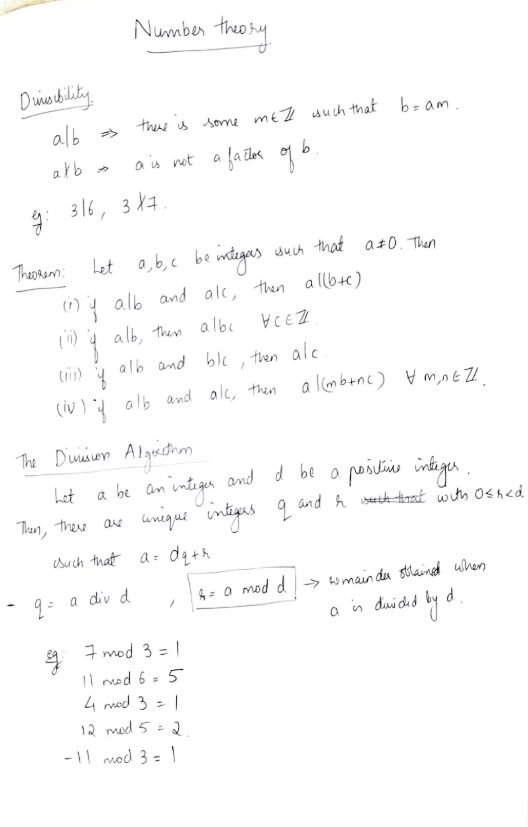 Number theory
Divisibility.
a|b ⇒ there is some m∈ℤ such that b=am.
a∤b ⇒ a is not a factor of b.
eg: 3|6, 3∤7.
Theorem: Let a,b,c be integers such that a≠0. Then
(i) if a|b and a|c, then a|(b+c)
(ii) if a|b, then a|bc ∀c∈ℤ
(iii) if a|b and b|c, then a|c
(iv) if a|b and a|c, then a|(mb+nc) ∀ m,n∈ℤ.
The Division Algorithm
Let a be an integer and d be a positive integer.
Then, there are unique integers q and r such that with 0≤r<d
such that a=dq+r
- q= a div d , r= a mod d → remainder obtained when
a is divided by d.
eg: 7 mod 3 = 1
11 mod 6 = 5
4 mod 3 = 1
12 mod 5 = 2
-11 mod 3 = 1